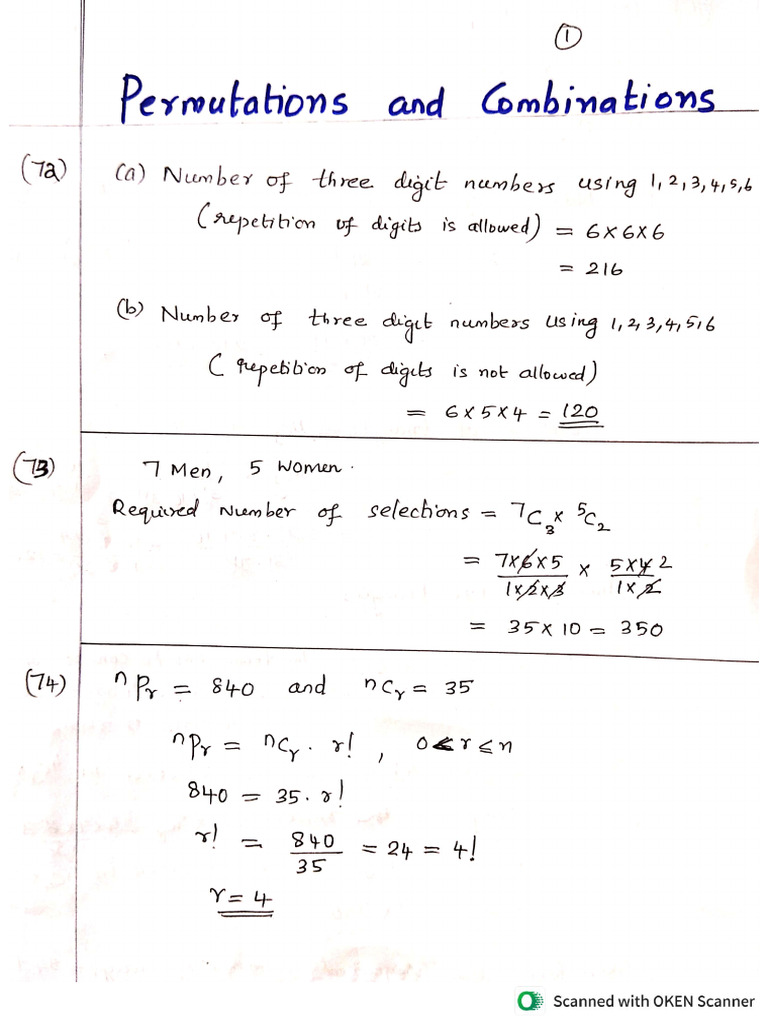 ①
Permutations and Combinations
(72) (a) Number of three digit numbers using 1, 2, 3, 4, 5, 6
(repetition of digits is allowed) = 6 × 6 × 6
= 216
(b) Number of three digit numbers using 1, 2, 3, 4, 5, 6
(repetition of digits is not allowed)
= 6 × 5 × 4 = 120
(73) 7 Men, 5 Women.
Required Number of selections = ⁷C₃ × ⁵C₂
= 7×6×5/1×2×3 × 5×4 2/1×2
= 35 × 10 = 350
(74) ⁿPᵣ = 840 and ⁿCᵣ = 35
ⁿPᵣ = ⁿCᵣ · r! , 0 ≤ r ≤ n
840 = 35 · r!
r! = 840/35 = 24 = 4!
r = 4
Scanned with OKEN Scanner